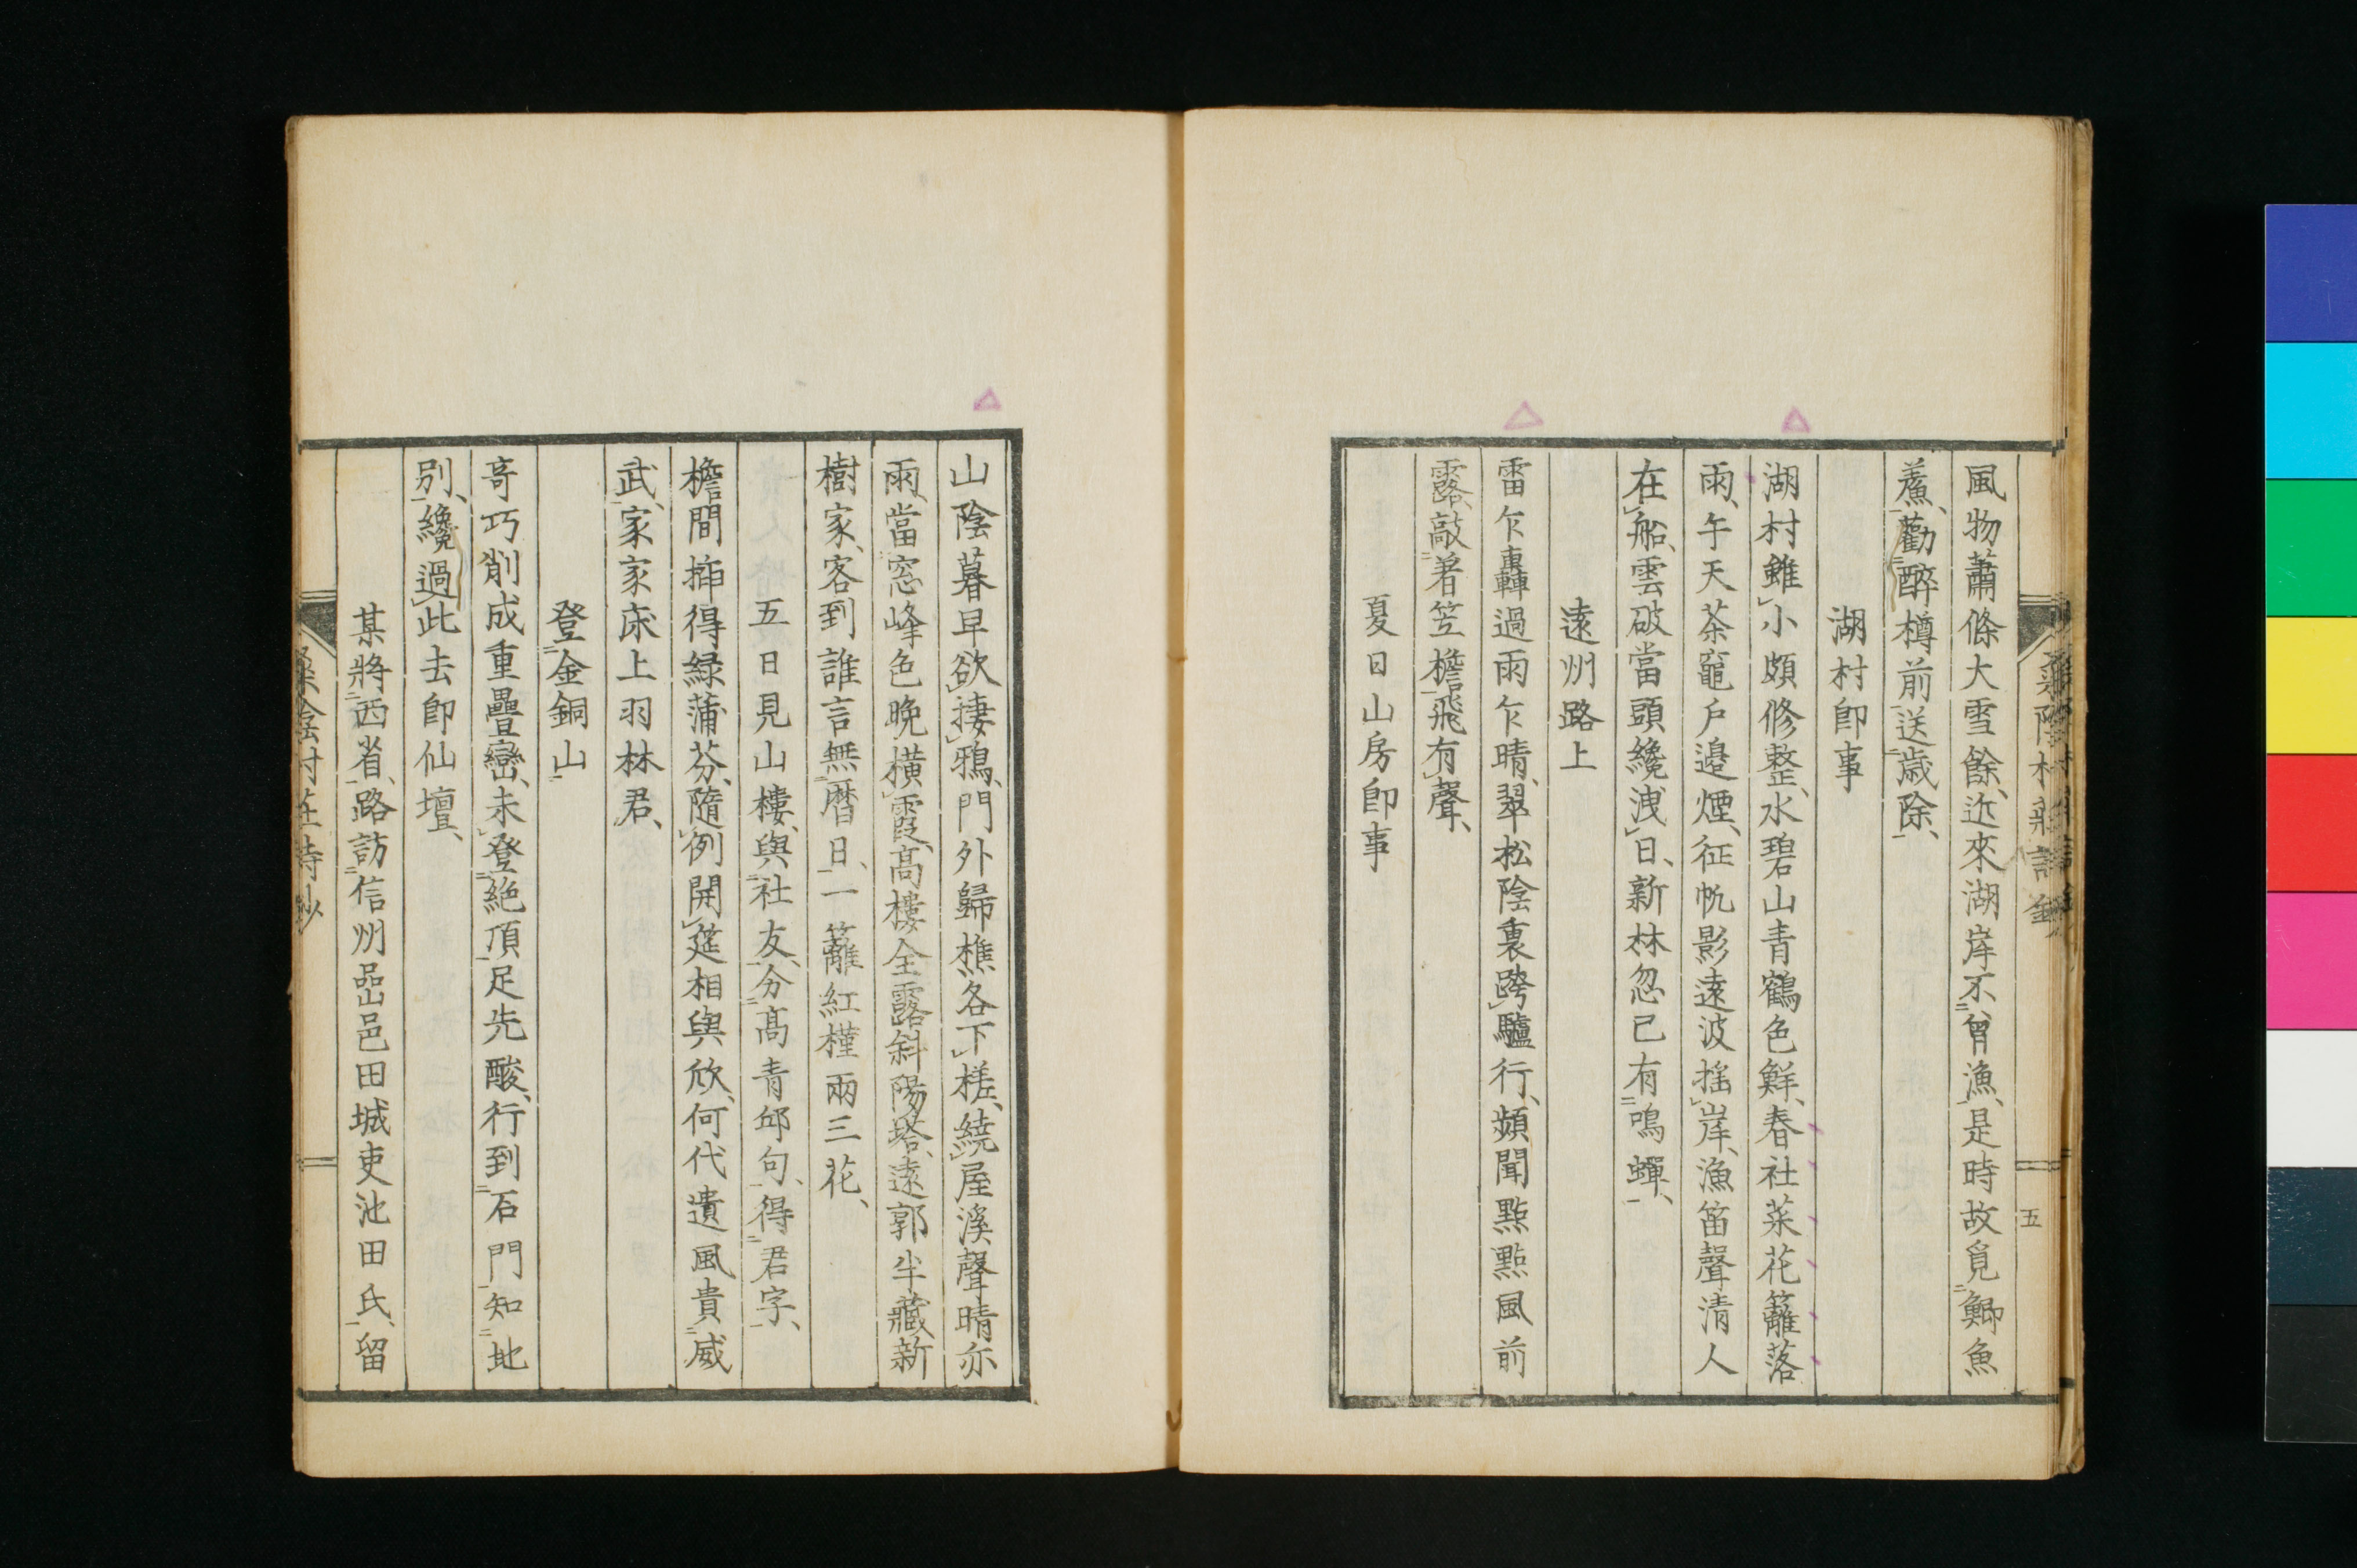 風物蕭條大雪餘、近來湖岸不曾漁、是時故覓鯽魚
鱶、勸醉樽前送歲除、
湖村卽事
湖村雖小頗修整、水碧山青鶴色鮮、春社菜花籬落
雨、午天茶竈戶邊煙、征帆影遠波搖岸、漁笛聲清人
在船、雲破當頭纔洩日、新林忽已有鳴蟬、
遠州路上
雷乍轟過雨乍晴、翠松陰裏跨驢行、頻聞點點風前
露、敲著笠檐飛有聲、
夏日山房卽事
五
山陰暮早欲捿鴉、門外歸樵各下槎、繞屋溪聲晴亦
雨、當窓峰色晚橫霞、高樓全露斜陽塔、遠郭半藏新
樹家、客到誰言無曆日、一籬紅槿兩三花、
五日見山樓、與社友、分高青邱句、得君字、
檐間揷得緑蒲芬、隨例開筵相與欣、何代遺風貴威
武、家家床上羽林君、
登金銅山
奇巧削成重疊巒、未登絶頂足先酸、行到石門知地
別、纔過此去卽仙壇、
某將西省、路訪信州嵒邑田城吏池田氏、留
桑陰村莊詩鈔